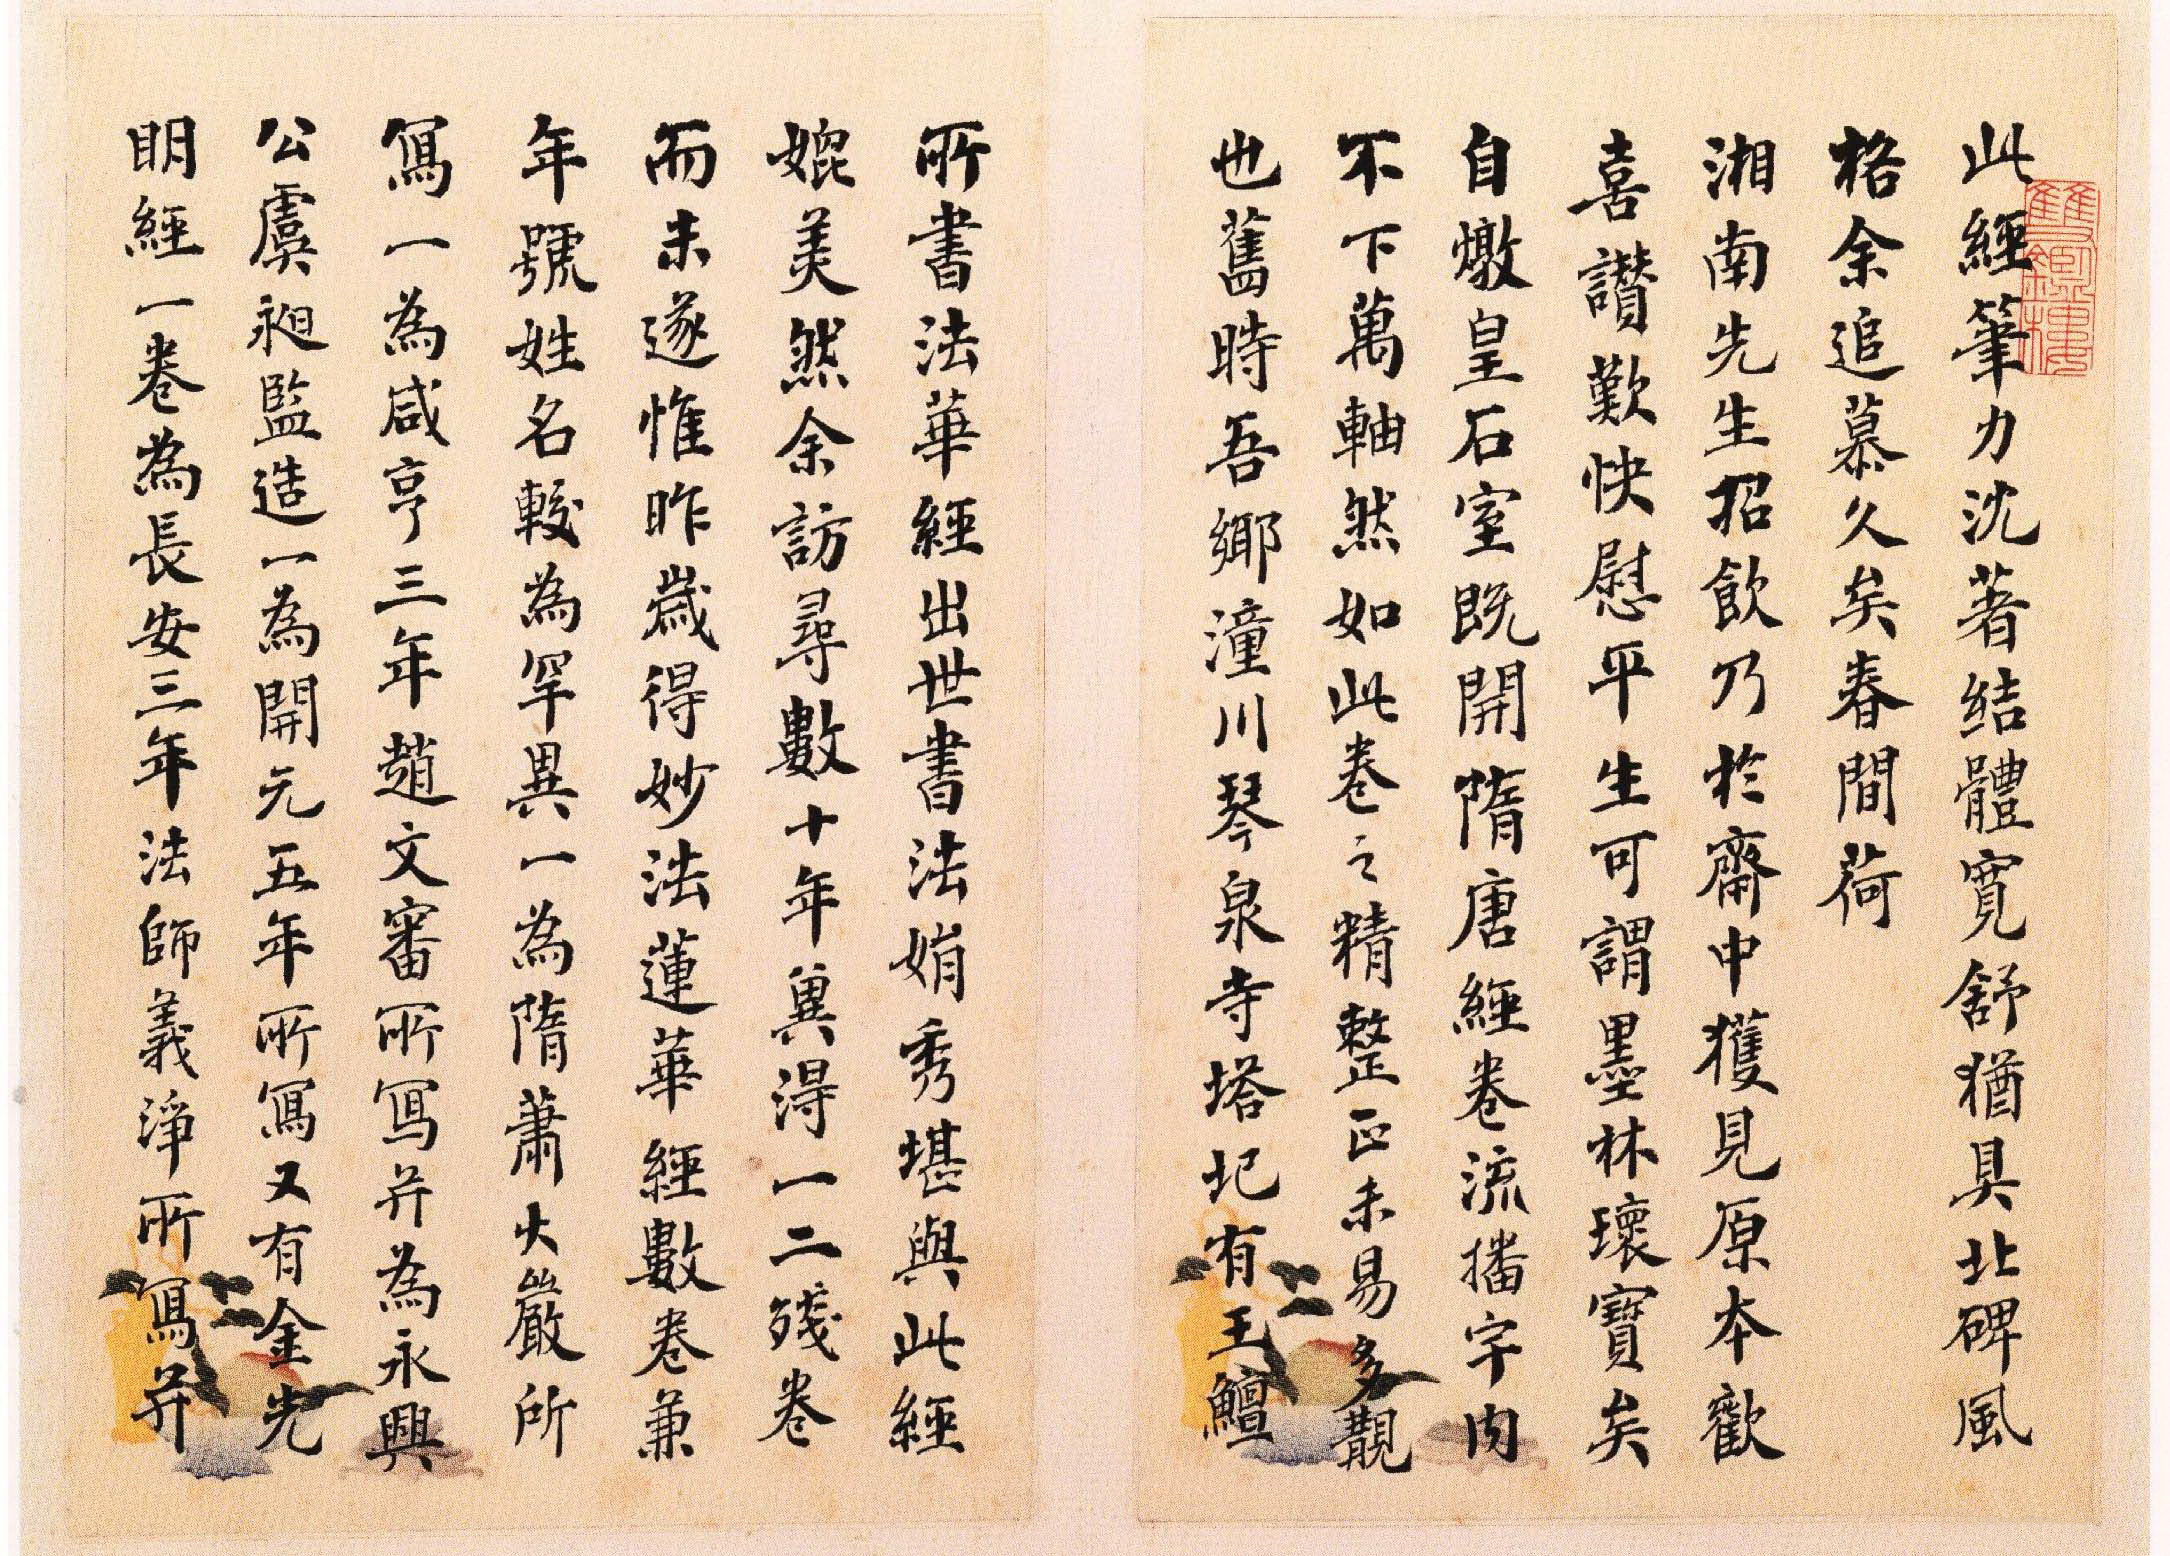 此經筆力沈著結體寬舒猶具北碑風
格余追慕久矣春間荷
湘南先生招飲乃於齋中獲見原本歡
喜讚歎快慰平生可謂墨林瓌寶矣
自燉皇石室既開隋唐經卷流播宇内
不下萬軸然如此卷之精整正未易多覯
也舊時吾鄉潼川琴泉寺塔圮有王鱣
所書法華經出世書法娟秀堪與此經
媲美然余訪尋數十年冀得一二殘卷
而未遂惟昨歲得妙法蓮華經數卷兼
年號姓名較為罕異一為隋蕭大嚴所
寫一為咸亨三年趙文審所寫并為永興
公虞昶監造一為開元五年所寫又有金光
明經一卷為長安三年法師義淨所寫并
雙鑑樓